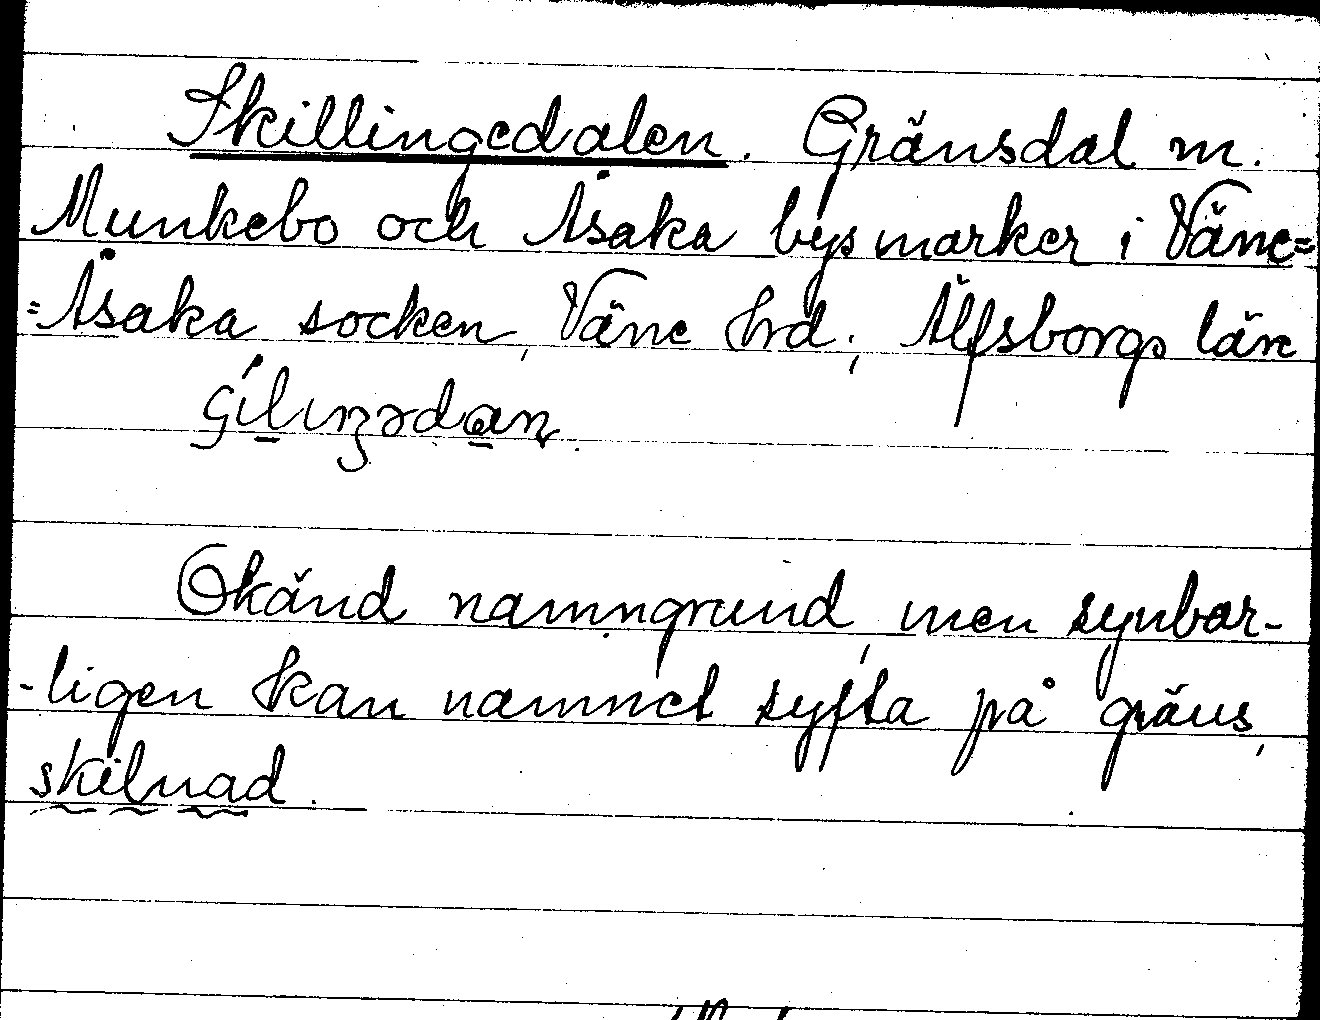 Skillingedalen. Gränsdal m.
Munkebo och Åsaka bys marker i Väne=
=Åsaka socken, Väne hrd; Älfsborgs län
Okänd namngrund, men synbar-
-ligen kan namnet syfta på gräns,
skilnad.